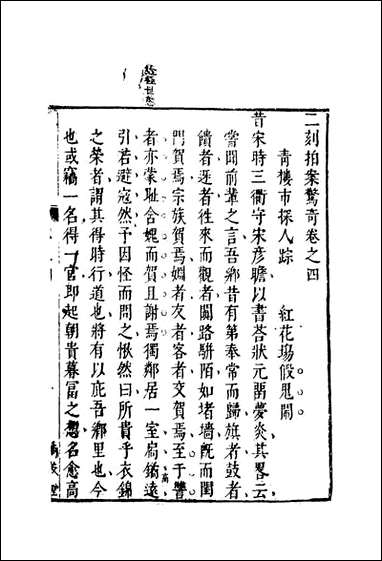 二刻拍案驚奇卷之四
青樓市探人踪 紅花場假鬼鬧
昔宋時三衢守宋彥瞻以書荅狀元畱夢炎其畧云
嘗聞前輩之言吾鄉昔有第奉常而歸旗者鼓者
饋者迓者徃來而觀者闐路駢陌如堵墻旣而閨
門賀焉宗族賀焉姻者友者客者交賀焉至于讐
者亦蒙耻含媿而賀且謝焉獨鄰居一室扃鐍遠
引若避寇然予因怪而問之愀然曰所貴乎衣錦
之榮者謂其得時行道也將有以庇吾鄉里也今
也或竊一名得一官即起朝貴暮富之想名愈高